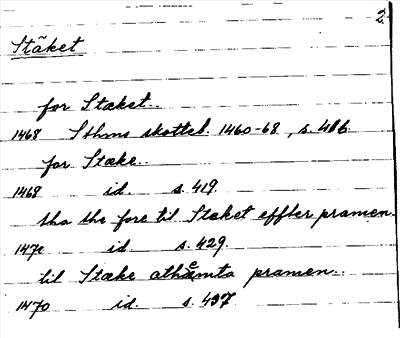 2.
Stäket
for Stæket..
1468 Sthms skotteb. 1460-68, s. 416.
for Stæke..
1468 id. s. 419.
tha the fore til Stæket effter pramen.
1470 id s. 429.
til Stæke athæmta pramen..
1470 id. s. 437